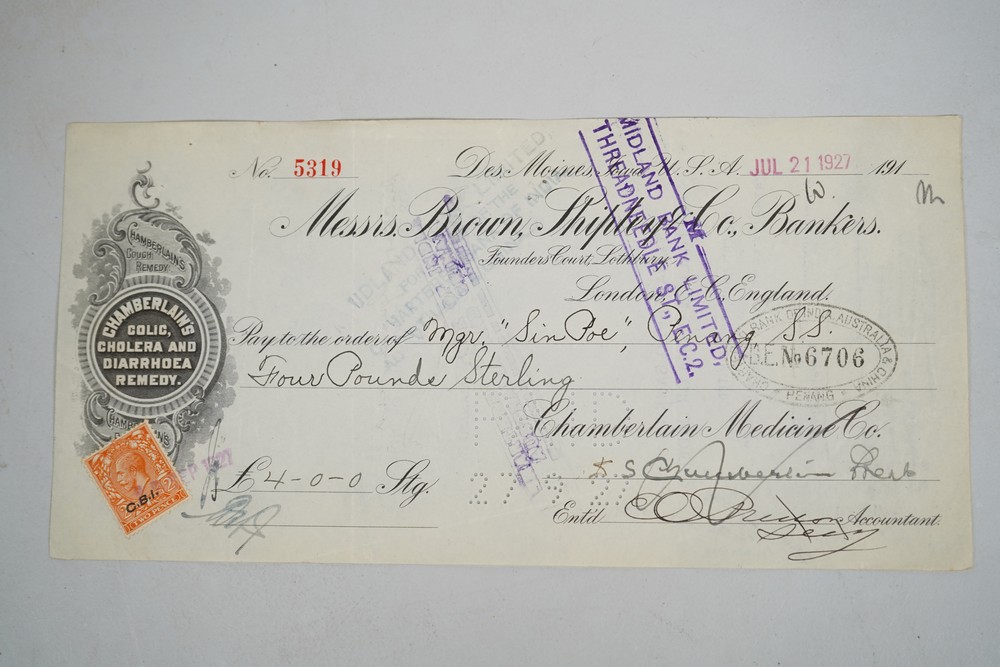 No. 5319
Des Moines, Iowa, U. S. A. JUL 21 1927 191
Messrs. Brown, Shipley & Co., Bankers.
Founders Court, Lothbury
London, E. C., England.
Pay to the order of Mgr. "Sin Poe", Penang SS.
Four Pounds Sterling
Chamberlain Medicine Co.
£ 4-0-0 Stg.
D S Chamberlain Prest
Ent'd
Accountant.
Secy
CHAMBERLAIN'S
COUGH
REMEDY
CHAMBERLAIN'S
COLIC,
CHOLERA AND
DIARRHOEA
REMEDY.
CHAMBERLAIN'S
C.B.I.
TWO PENCE
P 1927
MIDLAND BANK LIMITED,
THREADNEEDLE ST, E.C.2.
BANK OF INDIA AUSTRALIA & CHINA
B.E. No 6706
PENANG
PAID
27.9.27